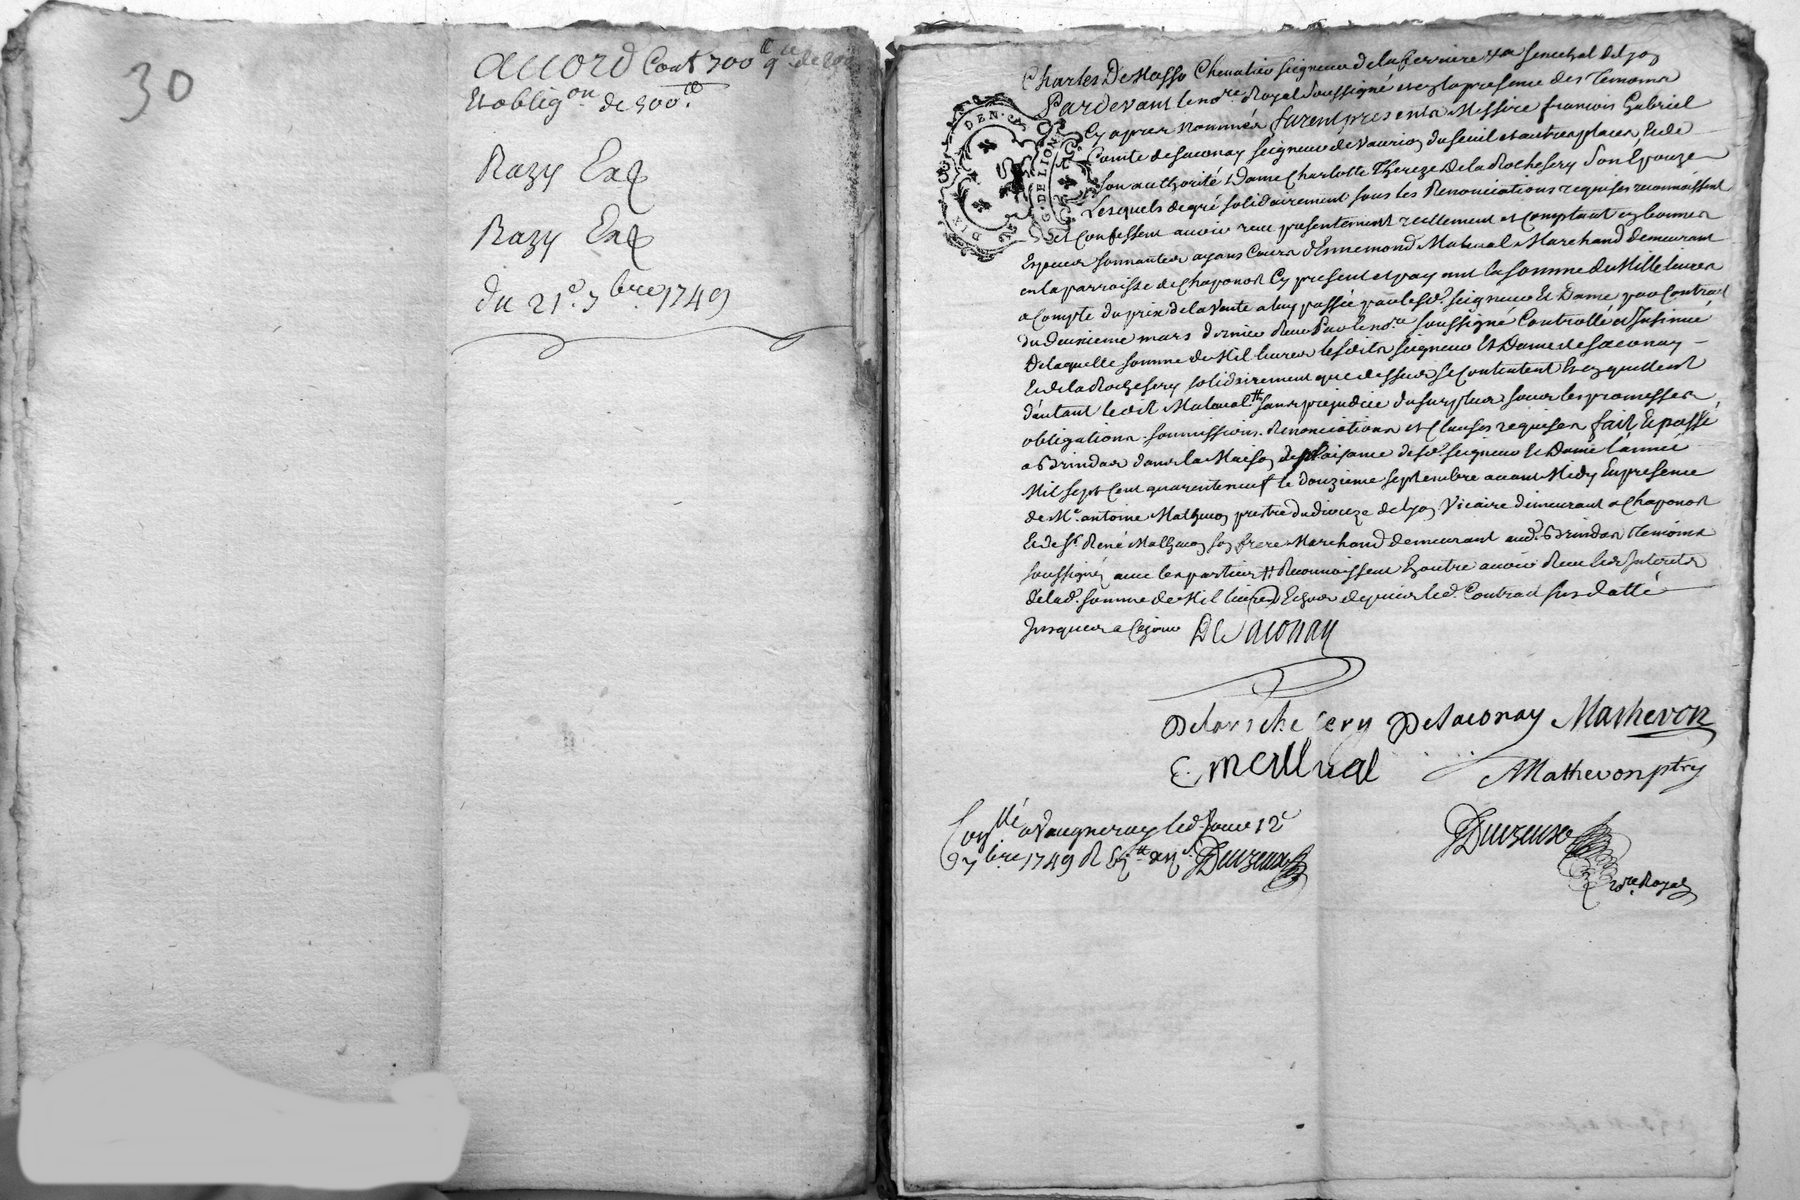 30
accord Cont 300ᵗᵗ
Et obligᵒⁿ de 300ᵗᵗ
Razy Exp
Razy Exp
du 21ᵉ 7bre 1749
DEN.
G. DE LION
Charles De Masso Chevalier seigneur de la ferriere senechal de lyon
Pardevant le noʳᵉ Royal soussigné et en la presence des Temoins
Cy apres nommés furent presents Messire francois Gabriel
Comte de saconay seigneur de Vaurion du seuil et autres places Et de
son authorité Dame Charlotte Thereze De la Rochefery son Epouze
Lesquels de gré solidairement sous les Renonciations requises reconnaissent
et Confessent avoir receu presentement reellement et comptant en bonnes
Especes sonnantes ayans Cours d'Ennemond Maleval Marchand demeurant
en la parroisse de Chaponost Cy present et payant la somme de Mille livres
a Compte du prix de la Vente a luy passée par lesd. seigneur Et Dame par Contract
du deuxieme mars dernier Receu Par le noʳᵉ soussigné Controllé et Insinué
De laquelle somme de Mil livres lesdits seigneur Et Dame de saconay
Et de la Rochefery solidairement que dessus se Contentent Et en quittent
d'autant led. Maleval sans prejudice du surplus sous les promesses
obligations soumissions Renonciations et Clauses requises fait Et passé
a Brindas dans la Maison de plaisance desd. seigneur Et Dame l'année
Mil sept Cent quarente neuf le douzieme septembre avant Midy En presence
de Mᵉ antoine Mathevon prestre du dioceze de lyon Vicaire demeurant a Chaponost
Et de sʳ René Mathevon son frere Marchand demeurant aud. Brindas Temoins
soussignés avec les parties # Reconnaissent En outre avoir Receu les Interets
de lad. somme de Mil livres Echus depuis led. Contract sus datté
Jusques a Ce jour De Saconay
Delarochefery DeSaconay Mathevon
E. maleval A Mathevon ptre
Conᵗˡˡé a Vaugneray led. Jour 12ᵉ
7bre 1749 R
noʳᵉ Royal